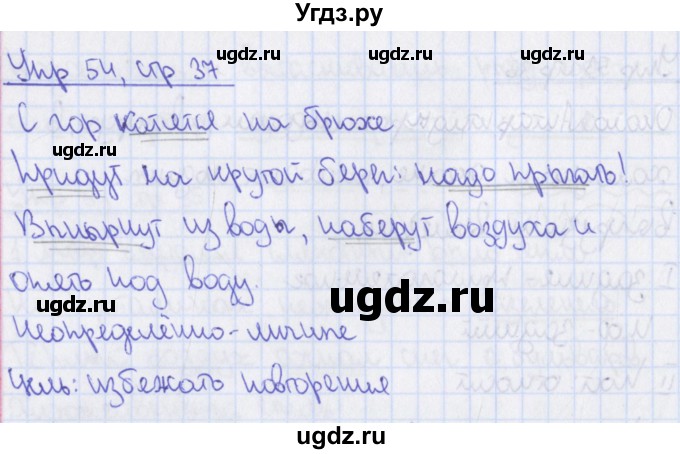 Угдз.ру
ugdz.ru ugdz.ru
Упр 54, стр 37
С гор катятся на брюхе
ugdz.ru ugdz.ru
Придут на крутой берег: надо прыгать!
Вынырнут из воды, наберут воздуха и
опять под воду.
ugdz.ru ugdz.ru ugdz.ru
Неопределённо-личные
Цель: избежать повторения
ugdz.ru ugdz.ru
ugdz.ru